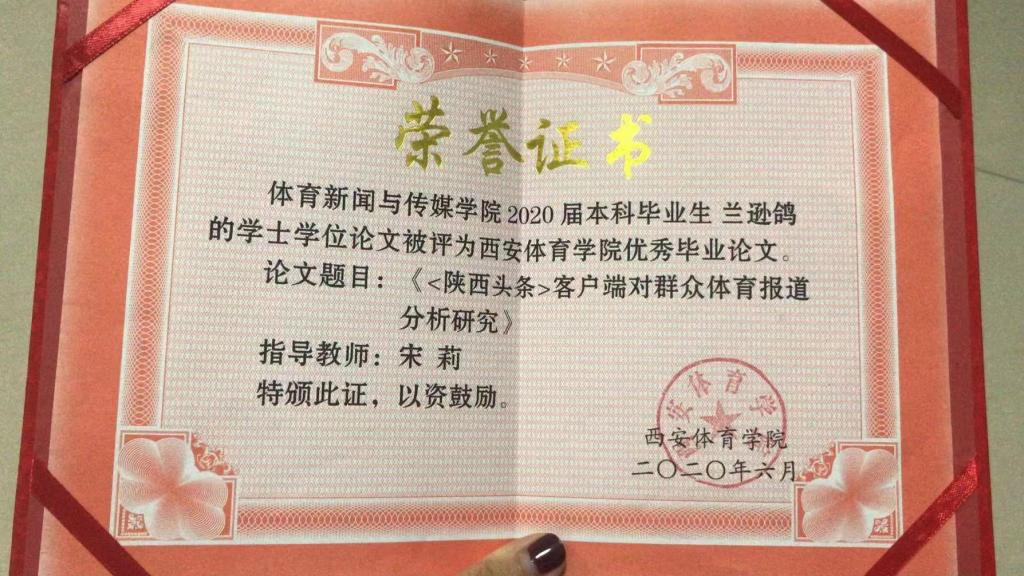 荣誉证书
体育新闻与传媒学院2020届本科毕业生 兰逊鸽
的学士学位论文被评为西安体育学院优秀毕业论文。
论文题目：《<陕西头条>客户端对群众体育报道
分析研究》
指导教师：宋 莉
特颁此证，以资鼓励。
西安体育学院
西安体育学院
二〇二〇年六月